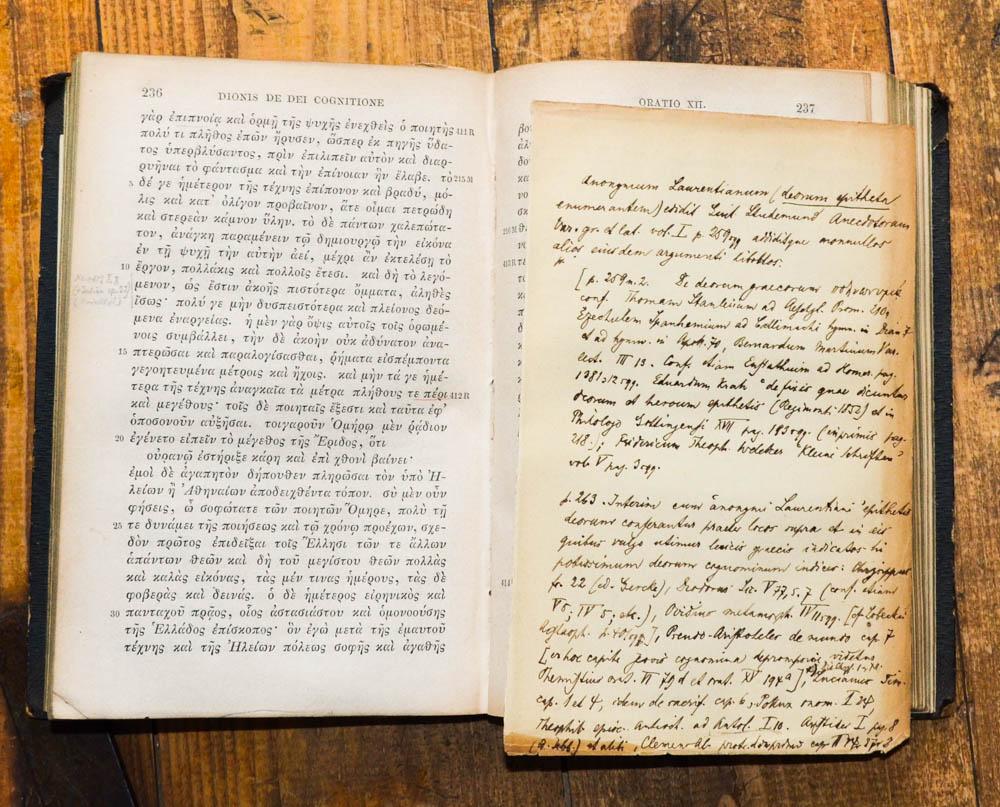 236
DIONIS DE DEI COGNITIONE
γὰρ ἐπιπνοίᾳ καὶ ὁρμῇ τῆς ψυχῆς ἐνεχθεὶς ὁ ποιητὴς 411 R
πολύ τι πλῆθος ἐπῶν ἤρυσεν, ὥσπερ ἐκ πηγῆς ὕδα-
τος ὑπερβλύσαντος, πρὶν ἐπιλιπεῖν αὐτὸν καὶ διαρ-
ρυῆναι τὸ φάντασμα καὶ τὴν ἐπίνοιαν ἣν ἔλαβε. τὸ 215 M
5 δέ γε ἡμέτερον τῆς τέχνης ἐπίπονον καὶ βραδύ, μό-
λις καὶ κατ' ὀλίγον προβαῖνον, ἅτε οἶμαι πετρώδη
καὶ στερεὰν κάμνον ὕλην. τὸ δὲ πάντων χαλεπώτα-
τον, ἀνάγκη παραμένειν τῷ δημιουργῷ τὴν εἰκόνα
ἐν τῇ ψυχῇ τὴν αὐτὴν ἀεί, μέχρι ἂν ἐκτελέσῃ τὸ
10 ἔργον, πολλάκις καὶ πολλοῖς ἔτεσι. καὶ δὴ τὸ λεγό-
μενον, ὡς ἔστιν ἀκοῆς πιστότερα ὄμματα, ἀληθὲς
ἴσως· πολύ γε μὴν δυσπειστότερα καὶ πλείονος δεό-
μενα ἐναργείας. ἡ μὲν γὰρ ὄψις αὐτοῖς τοῖς ὁρωμέ-
νοις συμβάλλει, τὴν δὲ ἀκοὴν οὐκ ἀδύνατον ἀνα-
15 πτερῶσαι καὶ παραλογίσασθαι, ῥήματα εἰσπέμποντα
γεγοητευμένα μέτροις καὶ ἤχοις. καὶ μὴν τά γε ἡμέ-
τερα τῆς τέχνης ἀναγκαῖα τὰ μέτρα πλήθους τε πέρι 412 R
καὶ μεγέθους· τοῖς δὲ ποιηταῖς ἔξεστι καὶ ταῦτα ἐφ'
ὁποσονοῦν αὐξῆσαι. τοιγαροῦν Ὁμήρῳ μὲν ῥᾴδιον
20 ἐγένετο εἰπεῖν τὸ μέγεθος τῆς Ἔριδος, ὅτι
οὐρανῷ ἐστήριξε κάρη καὶ ἐπὶ χθονὶ βαίνει·
ἐμοὶ δὲ ἀγαπητὸν δήπουθεν πληρῶσαι τὸν ὑπὸ Ἠ-
λείων ἢ Ἀθηναίων ἀποδειχθέντα τόπον. σὺ μὲν οὖν
φήσεις, ὦ σοφώτατε τῶν ποιητῶν Ὅμηρε, πολὺ τῇ
25 τε δυνάμει τῆς ποιήσεως καὶ τῷ χρόνῳ προέχων, σχε-
δὸν πρῶτος ἐπιδεῖξαι τοῖς Ἕλλησι τῶν τε ἄλλων
ἁπάντων θεῶν καὶ δὴ τοῦ μεγίστου θεῶν πολλὰς
καὶ καλὰς εἰκόνας, τὰς μέν τινας ἡμέρους, τὰς δὲ
φοβερὰς καὶ δεινάς. ὁ δὲ ἡμέτερος εἰρηνικὸς καὶ
30 πανταχοῦ πρᾷος, οἷος ἀστασιάστου καὶ ὁμονοούσης
τῆς Ἑλλάδος ἐπίσκοπος· ὃν ἐγὼ μετὰ τῆς ἐμαυτοῦ
τέχνης καὶ τῆς Ἠλείων πόλεως σοφῆς καὶ ἀγαθῆς
ORATIO XII.
237
Anonymum Laurentianum (deorum epitheta
enumerantem) edidit Guil Studemund Anecdotorum
Var. gr. et lat. vol. I p. 269 sqq addiditque nonnullos
alios eiusdem argumenti libellos:
[p. 259 m. 2. De deorum graecorum
conf. Thomam Stanleium ad Aeschyl. Prom. 210,
Ezechielem Spanhemium ad Callimachi hymn. in Dian. 7
et ad hymn. in Apoll. 70, Bernardum Martinum Var.
lect. III 13. Conf. etiam Eustathium ad Homer. pag.
1381,12 sqq. Eduardum "de priscis quae dicuntur
deorum et heroum epithetis (Regimont. 1852) et in
Philologo Gottingensi XVII pag. 193 sqq. (inprimis pag.
218.), Fridericum Theoph. Welcker "Kleine Schriften"
vol. V pag. 3 sqq.
p. 263. Interim cum anonymi Laurentiani epithetis
deorum conferantur praeter locos supra et in eis
quibus vulgo utimur lexicis graecis indicatos hi
potissimum deorum cognominum indices: Chrysippus
fr. 22 (ed. Gercke), Diodorus Sic. V 72, 5. 7 (conf. etiam
V 5; IV 5; etc.), Ovidius metamorph. IV 11 sqq. [cf Lobeckii
Aglaoph. p. 401 sqq], Pseudo-Aristoteles de mundo cap. 7
[ex hoc capite Jovis cognomina deprompsit
Themistius orat. VI 79 d et orat. XV 194 a], Lucianus Tim.
cap. 1 et 4, idem de sacrif. cap. 6, Pollux onom. I 24,
Theophil. episc. Antioch. ad Autol. I 10. Aristides I pag. 8
et alibi, Clemens Al.